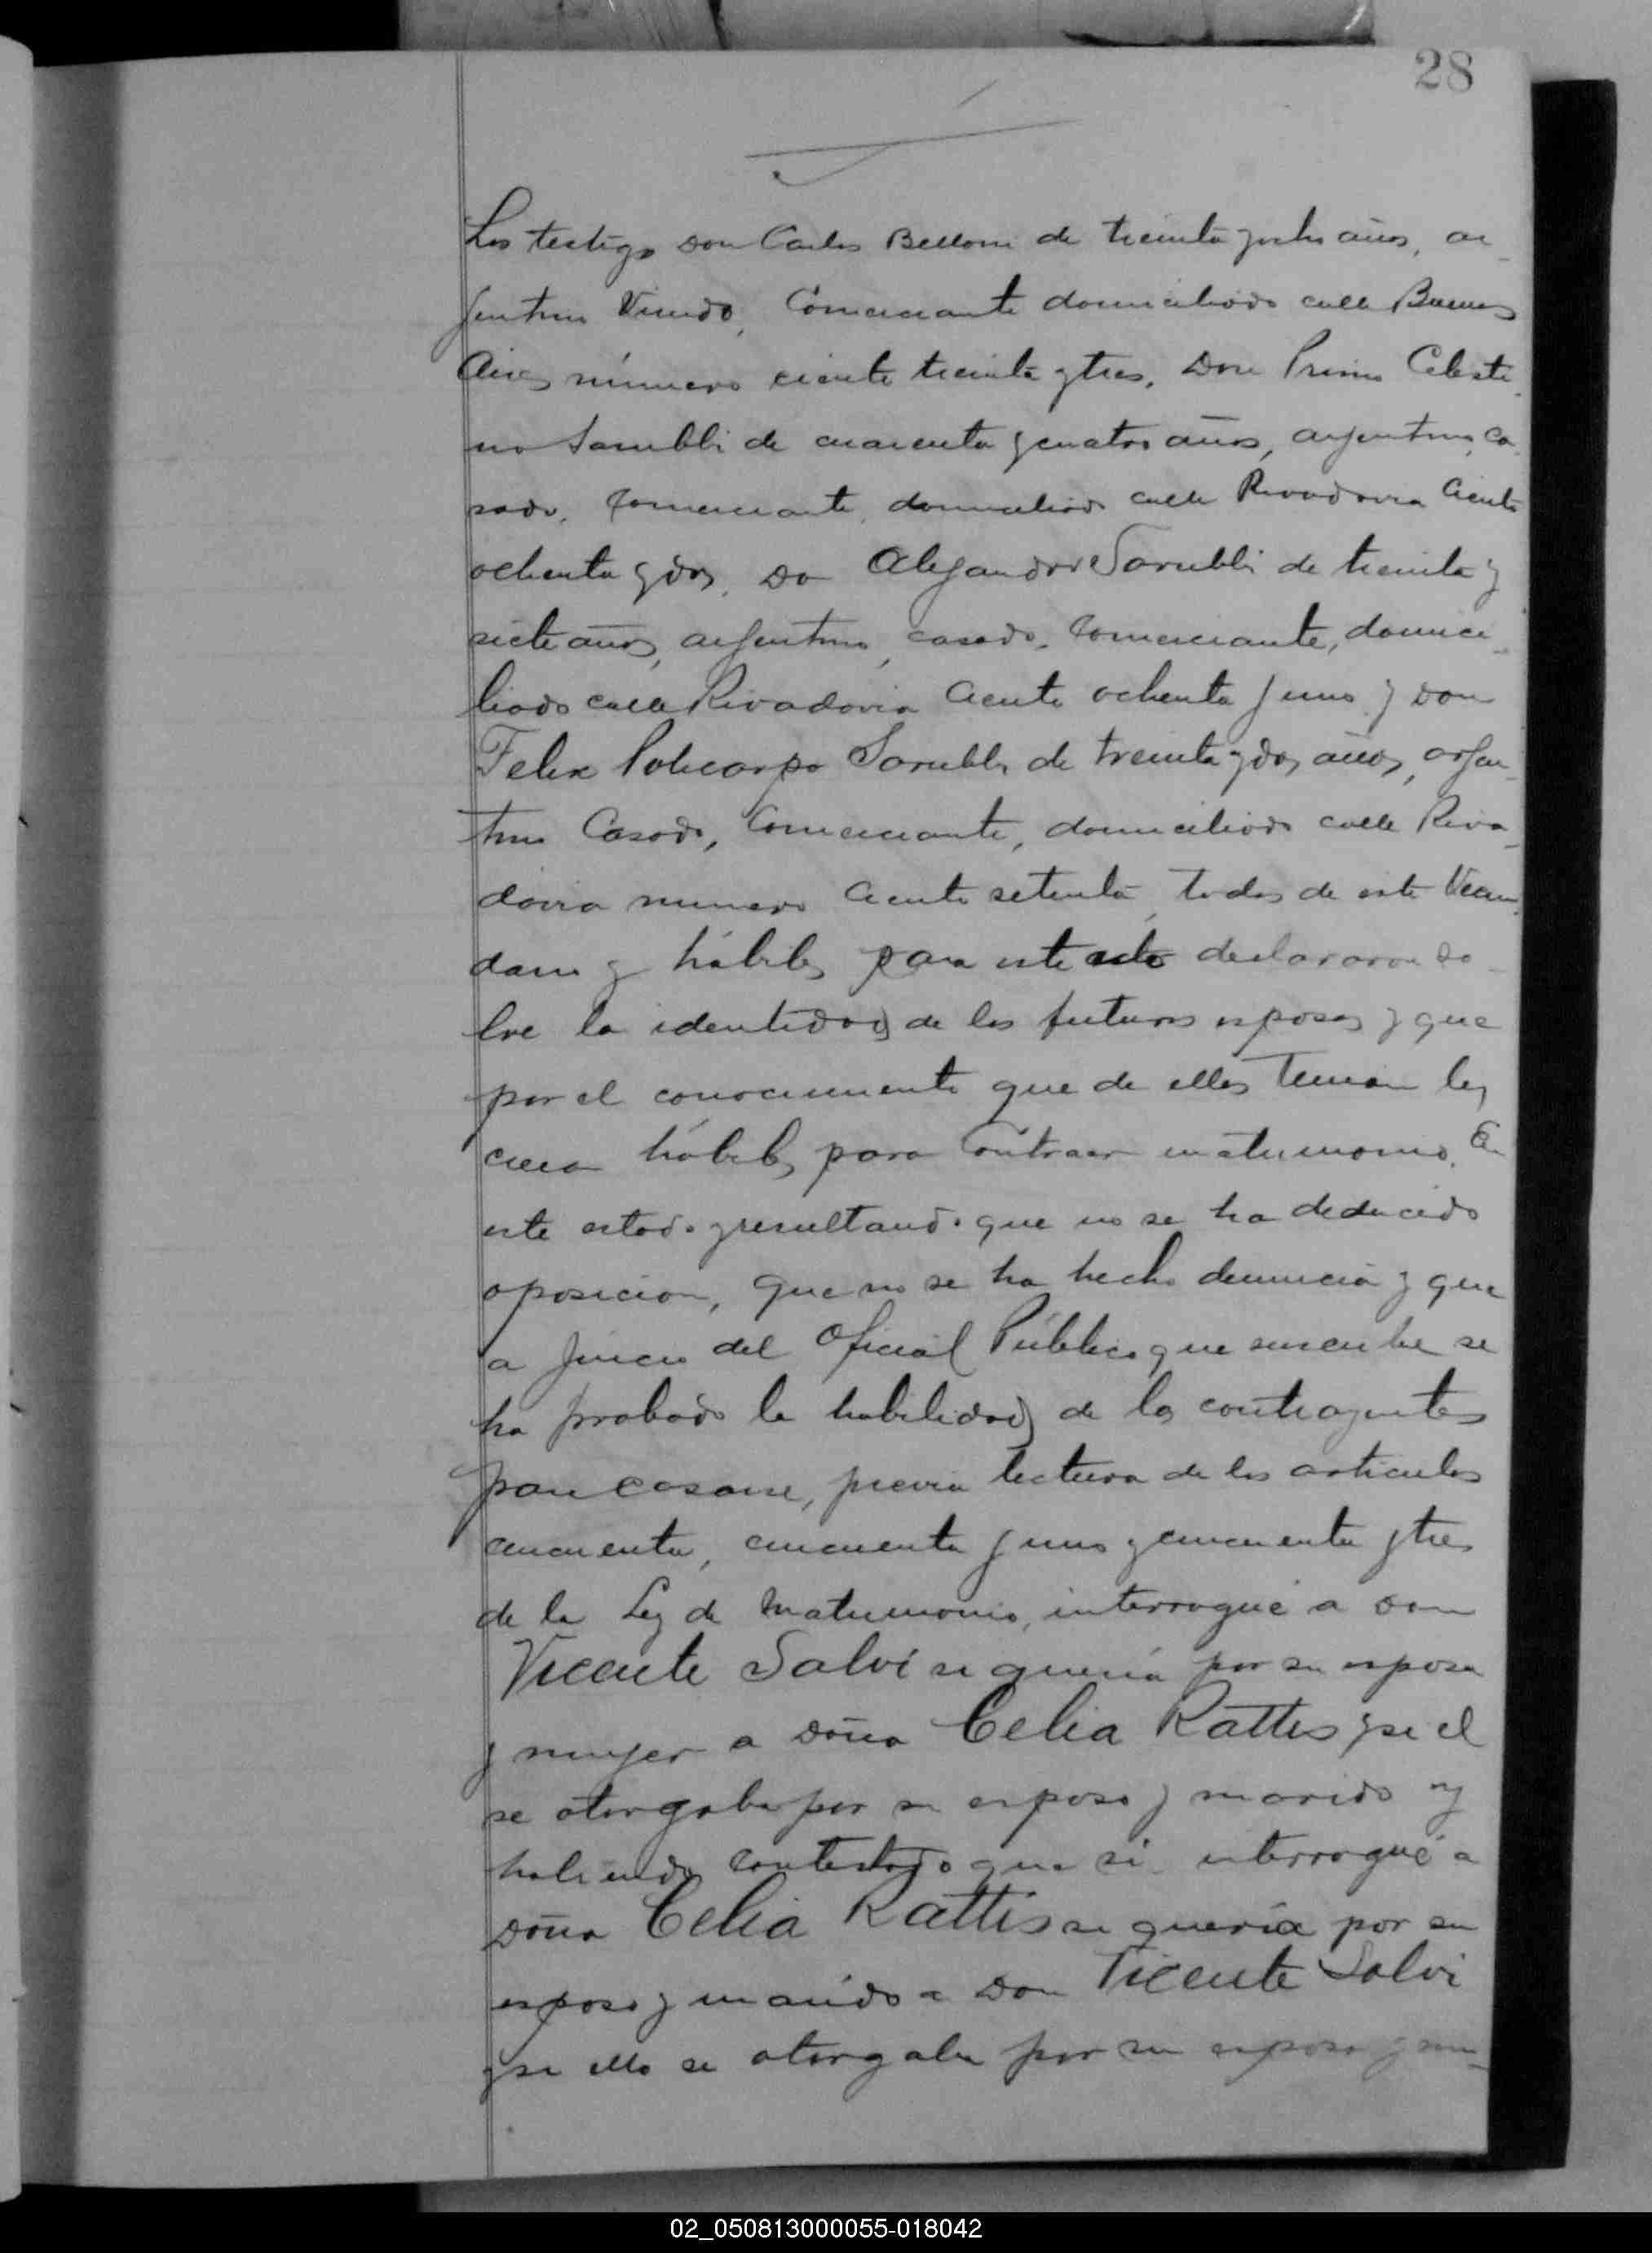 28
Los testigo Don Carlos Belloni de treinta y ocho años, ar
gentino Viudo, Comerciante domiciliado calle Buenos
Aires número ciento treinta y tres, Don Primo Celesti
no Sarubbi de cuarenta y cuatro años, argentino, ca
sado, Comerciante, domiciliado calle Rivadavia Ciento
ochenta y dos, Do Alejandro Sarubbi de treinta y
siete años, argentino, casado, Comerciante, domici
liado calle Rivadavia Ciento ochenta y uno y Don
Felix Policarpo Sarubbi de treinta y dos años, argen
tino Casado, Comerciante, domiciliado calle Riva
davia numero Ciento setenta, todos de este Vecin
dario y hábiles para este acto declararon so
bre la identidad de los futuros esposos y que
por el conocimiento que de ellos Tenian los
creia hábiles para Contraer matrimonio. En
este estado y resultando que no se ha deducido
oposicion, que no se ha hecho denuncia y que
a juicio del Oficial Público que suscribe se
ha probado la habilidad de los contrayentes
para casarse, previa lectura de los articulos
cincuenta, cincuenta y uno y cincuenta y tres
de la Ley de Matrimonio, interrogué a Don
Vicente Salvi si queria por su esposa
y mujer a Doña Celia Rattis y si el
se otorgaba por su esposo y marido y
habiendo contestado que si interrogué a
Doña Celia Rattis si quería por su
esposo y marido a Don Vicente Salvi
y si ella se otorgaba por su esposa y mu
02_050813000055-018042